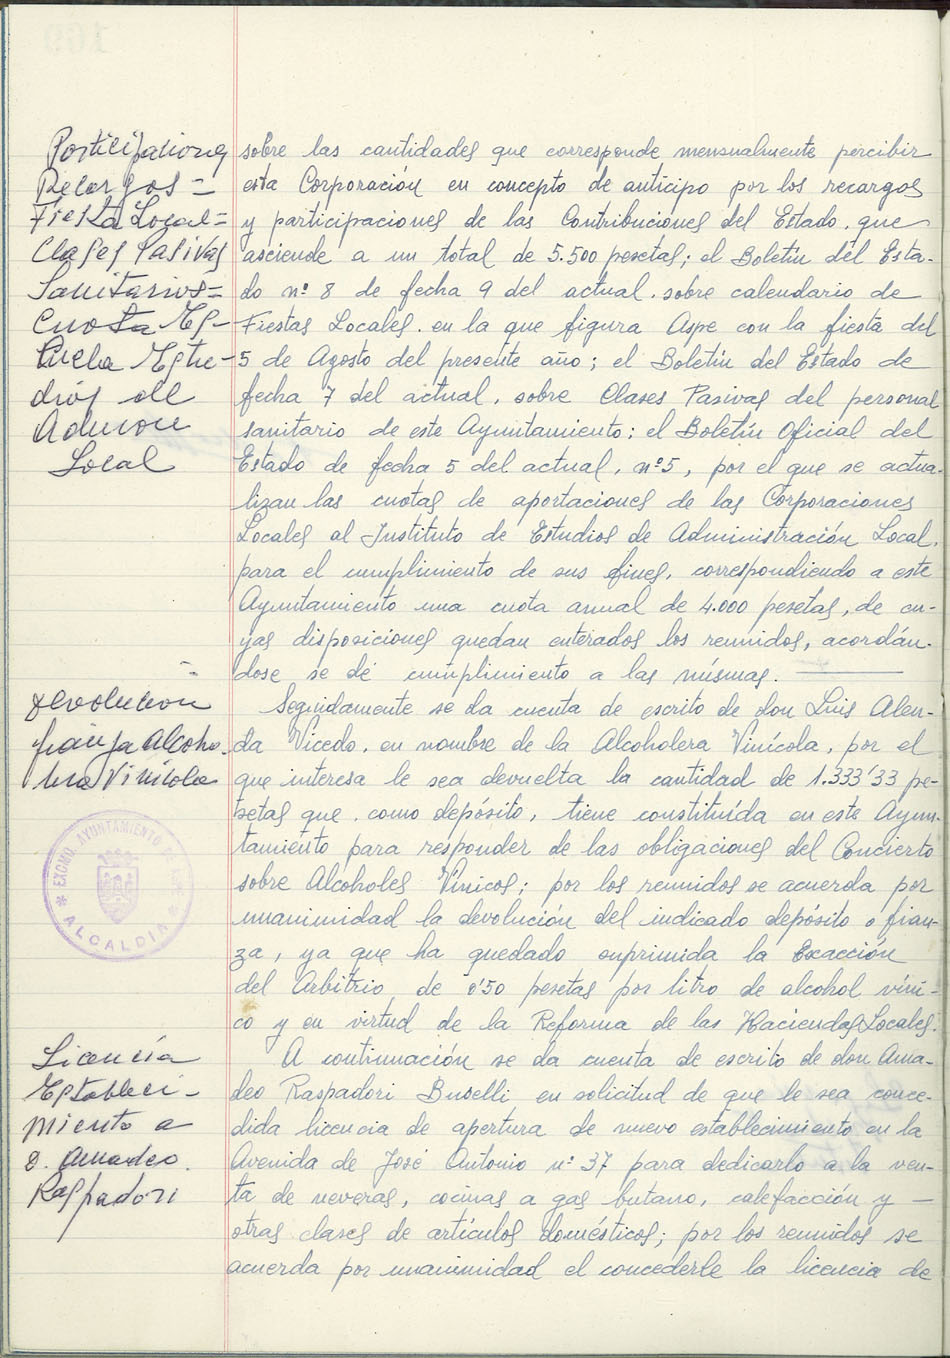 Participaciones
Recargos =
Fiesta Local =
Clases Pasivas
Sanitarios =
Cuota Es-
cuela Estu-
dios de
Admon
Local
sobre las cantidades que corresponde mensualmente percibir
esta Corporación en concepto de anticipo por los recargos
y participaciones de las Contribuciones del Estado, que
asciende a un total de 5.500 pesetas; el Boletín del Esta-
do nº 8 de fecha 9 del actual, sobre calendario de
Fiestas Locales, en la que figura Aspe con la fiesta del
5 de Agosto del presente año; el Boletín del Estado de
fecha 7 del actual, sobre Clases Pasivas del personal
sanitario de este Ayuntamiento; el Boletín Oficial del
Estado de fecha 5 del actual, nº 5, por el que se actua-
lizan las cuotas de aportaciones de las Corporaciones
Locales al Instituto de Estudios de Administración Local,
para el cumplimiento de sus fines, correspondiendo a este
Ayuntamiento una cuota anual de 4.000 pesetas, de cu-
yas disposiciones quedan enterados los reunidos, acordán-
dose se dé cumplimiento a las mismas.
devolución
fianza Alcoho-
lera Vinícola
Seguidamente se da cuenta de escrito de don Luis Alen-
da Vicedo, en nombre de la Alcoholera Vinícola, por el
que interesa le sea devuelta la cantidad de 1.333'33 pe-
setas que, como depósito, tiene constituída en este Ayun-
tamiento para responder de las obligaciones del Concierto
sobre Alcoholes Vínicos; por los reunidos se acuerda por
unanimidad la devolución del indicado depósito o fian-
za, ya que ha quedado suprimida la Exacción
del Arbitrio de 0'50 pesetas por litro de alcohol víni-
co y en virtud de la Reforma de las Haciendas Locales.
EXCMO. AYUNTAMIENTO DE ASPE
ALCALDIA
Licencia
Estableci-
miento a
D. Amadeo
Raspadori
A continuación se da cuenta de escrito de don Ama-
deo Raspadori Buselli en solicitud de que le sea conce-
dida licencia de apertura de nuevo establecimiento en la
Avenida de José Antonio nº 37 para dedicarlo a la ven-
ta de neveras, cocinas a gas butano, calefacción y
otras clases de artículos domésticos; por los reunidos se
acuerda por unanimidad el concederle la licencia de